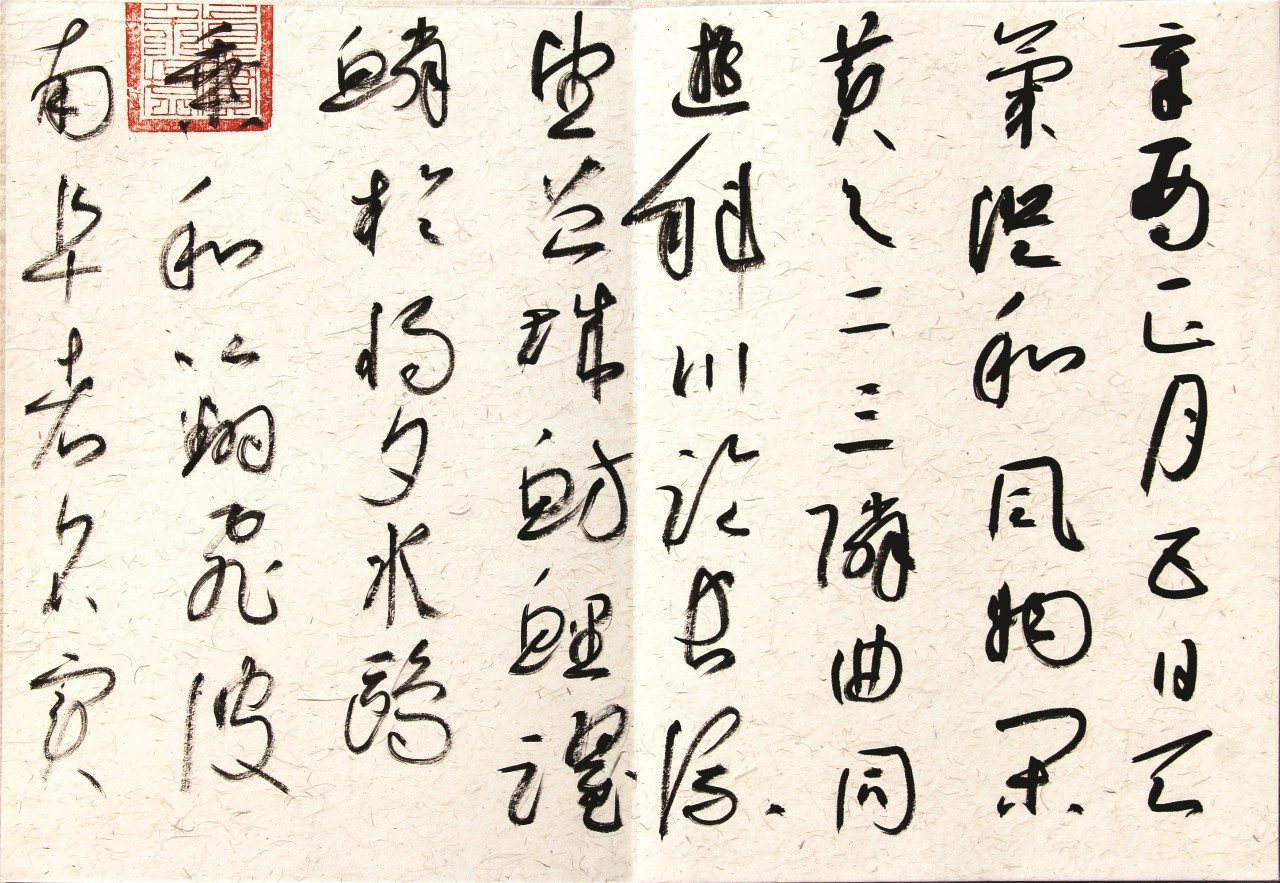 辛酉正月五日天
氣澄和風物閑
美與二三鄰曲同
遊斜川臨長流
望曾城魴鯉躍
鱗於將夕水鷗
乘和以翻飛彼
南阜者名實